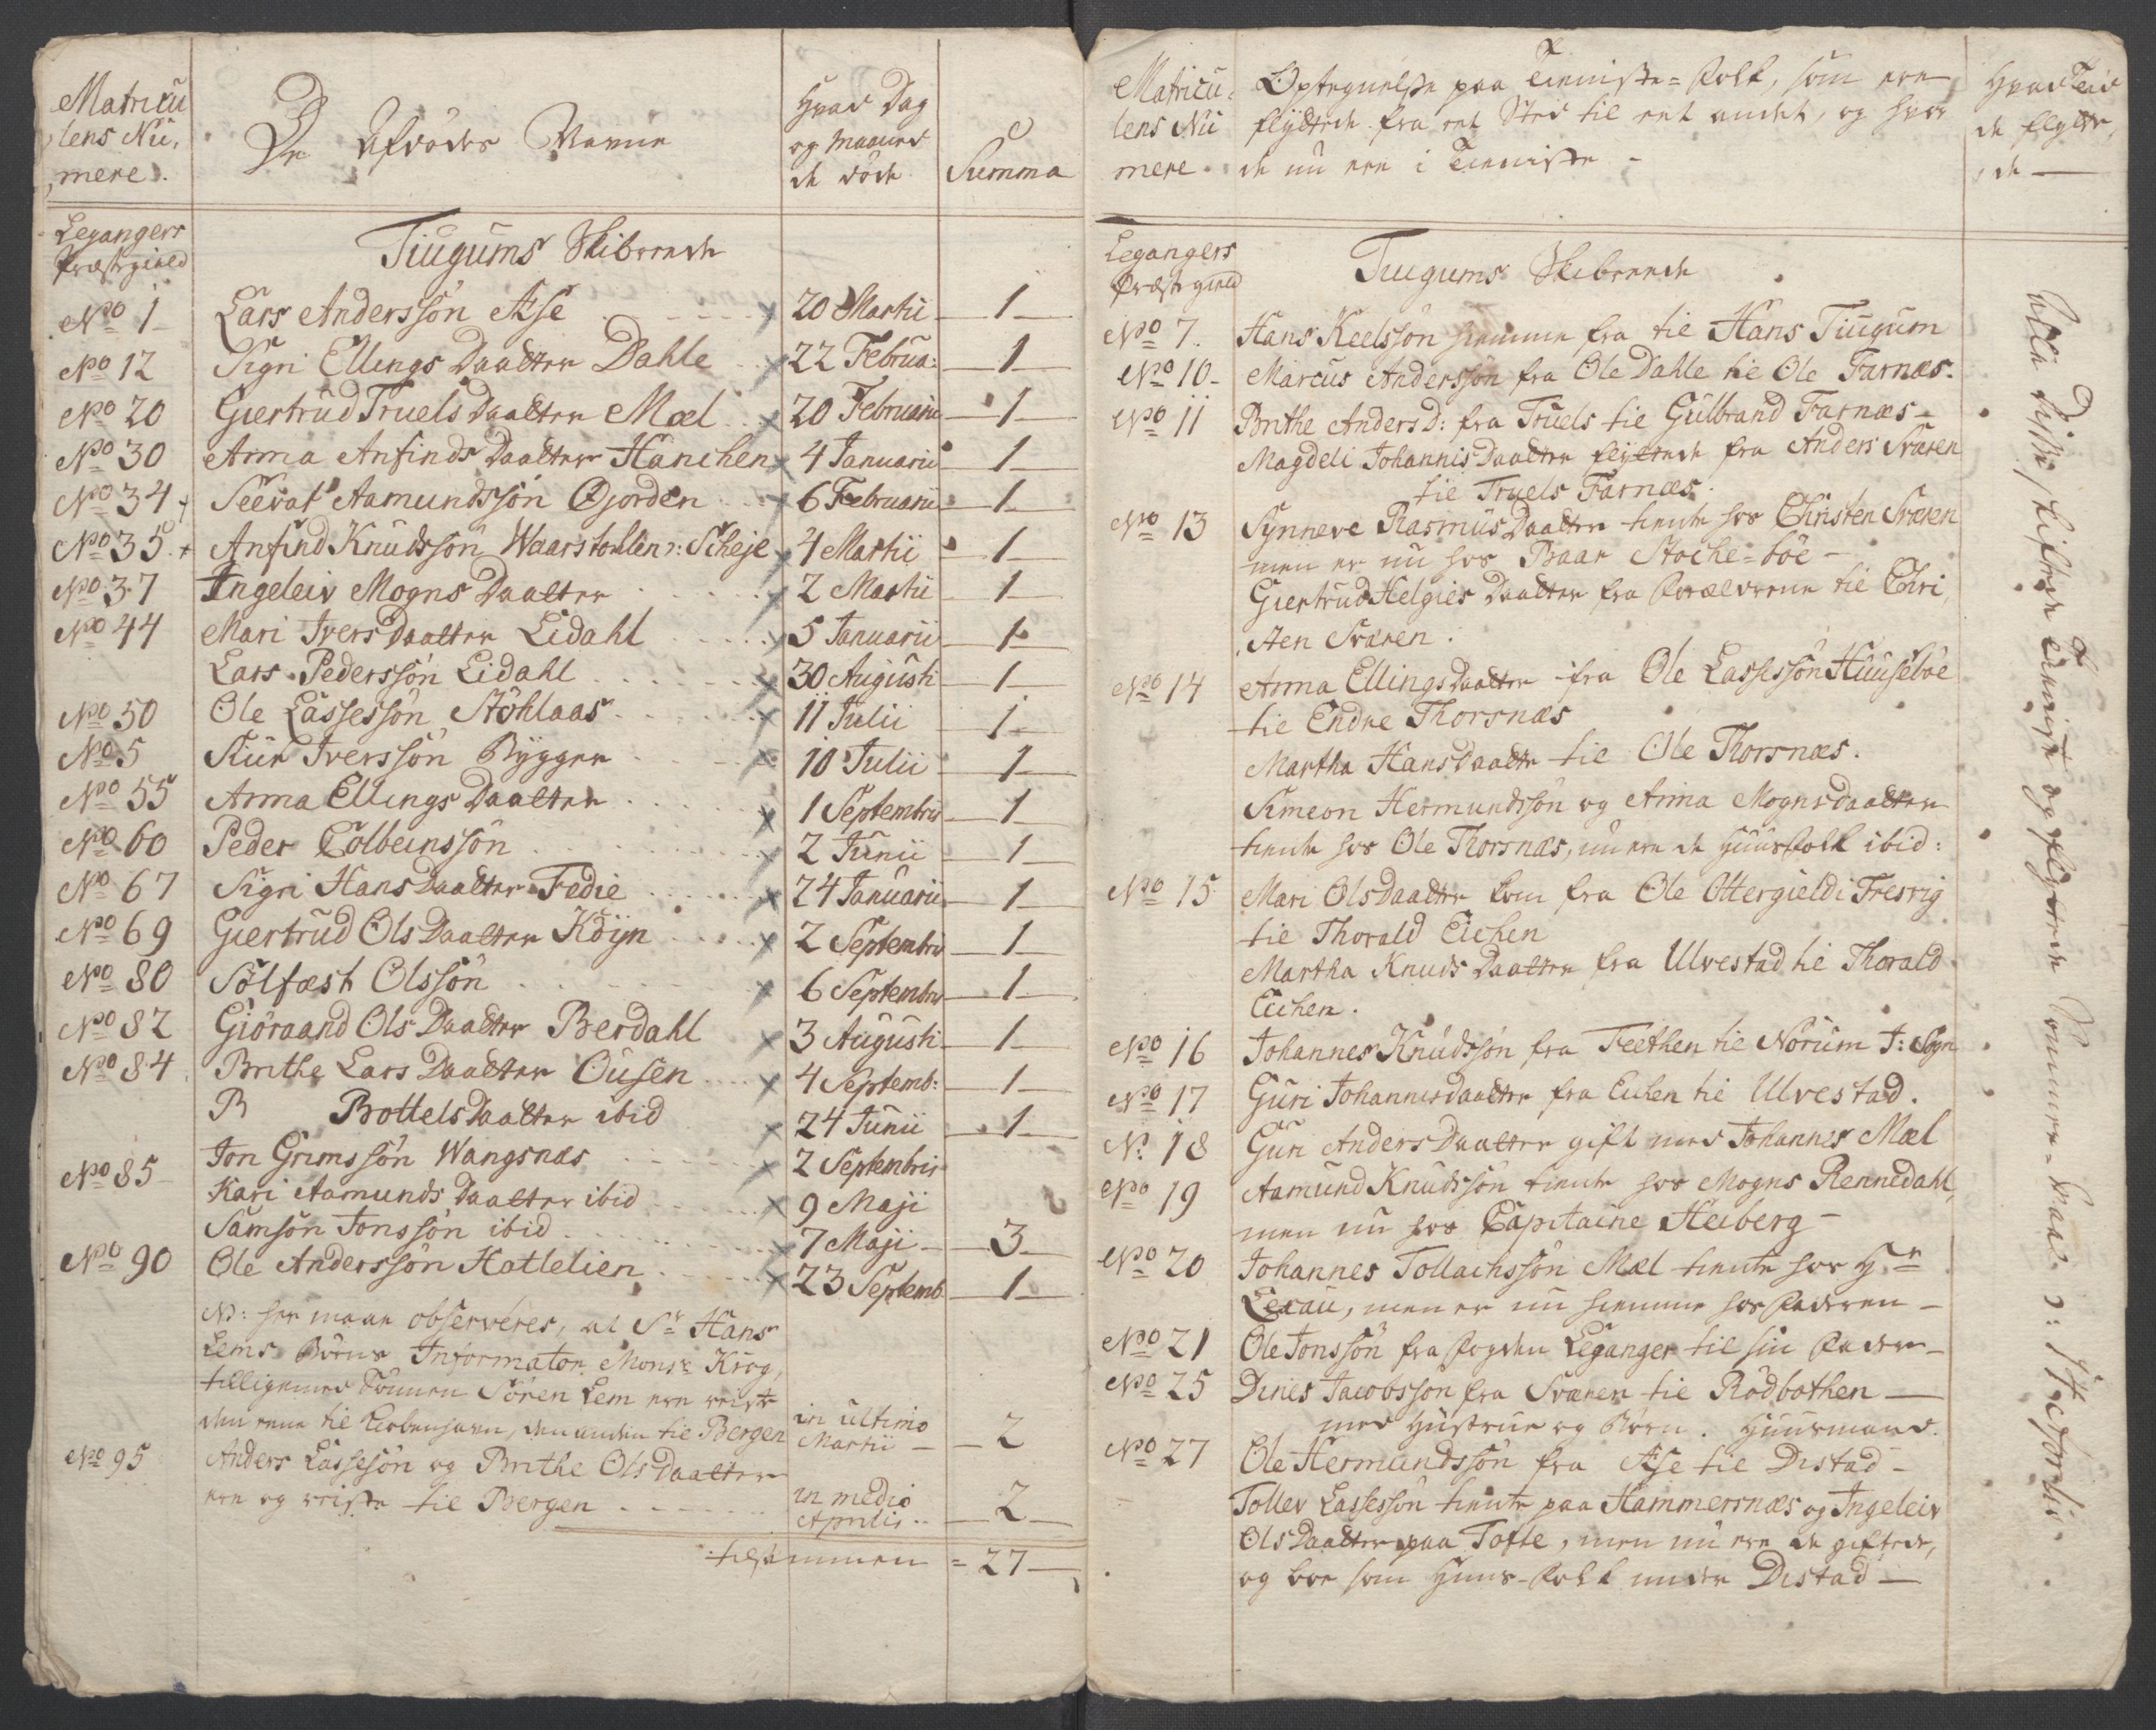 Matricu
lens Nu,
mere.
De Afdödes Navne
Hvad Dag
og Maaned
de döde
Summa
Legangers
Præstegield
Tiugums Skibrede
No 1 Lars Anderssön Ase 20 Martii 1
No 12 Sigri Ellings Daatter Dahle 22 Februa: 1
No 20 Giertrud Truels Daatter Mæl 20 Februarii 1
No 30 Anna Anfinds Daatter Hanchen 4 Januarii 1
No 34 Seevat Aamundssön Øjorden 6 Februarii 1
No 35 Anfind Knudssön Waarstohlen ɔ: Scheje 4 Martii 1
No 37 Ingeleiv Mogns Daatter 2 Martii 1
No 44 Mari Ivers Daatter Eidahl 5 Januarii 1
Lars Pederssön Eidahl 30 Augusti 1
No 50 Ole Lassessön Stöhlaas 11 Julii 1
No 5 Siur Iverssön Bygger 10 Julii 1
No 55 Anna Ellings Daatter 1 Septembris 1
No 60 Peder Colbeinssön 2 Junii 1
No 67 Sigri Hans Daatter Fedie 24 Januarii 1
No 69 Giertrud Ols Daatter Köijn 2 Septembris 1
No 80 Sölfæst Olssön 6 Septembris 1
No 82 Giöraand Ols Daatter Berdahl 3 Augusti 1
No 84 Brithe Lars Daatter Ousen 4 Septemb: 1
B Bottels Daatter ibid 24 Junii 1
No 85 Jon Grimssön Wangsnæs 2 Septembris
Kari Aamunds Daatter ibid 9 Maji
Samson Jonssön ibid 7 Maji 3
No 90 Ole Anderssön Hatlelien 23 Septemb 1
NB: her maae observeres, at Sr Hans
Lems Börns Informator Monsr Krog,
tilligemed Sönnen Sören Lem ere reiste
den eene til Kiöbenhavn, den anden til Bergen in ultimo Martii 2
No 95 Anders Lassesön og Brithe Ols Daatter
ere og reiste til Bergen in medio Aprilis 2
tilsammen = 27
Matricu:
lens Nu
mere
Optegnelse paa Tieniste-Folk, som ere
flyttede fra eet Sted til eet andet, og hvor
de nu ere i Tieniste
Hvad Tiid
de flytte,
de
Legangers
Præstegield
Tiugums Skibrede
No 7. Hans Keelssön hiemme fra til Hans Tiugum
No 10 Marcus Anderssön fra Ole Dahle til Ole Farnæs.
No 11 Brithe Anders D: fra Truels til Gulbrand Farnæs
Magdeli Johannis Daatter flyttede fra Anders Sværen
til Truels Farnæs.
No 13 Synneve Rasmus Daatter tiente hos Christen Sværen
men er nu hos Baar Stoche-böe
Giertrud Helgies Daatter fra Forældrene til Chri,
sten Sværen.
No 14 Anna Ellings Daatter fra Ole Lassessön Huuseböe
til Endre Thorsnæs
Martha Hans Daatter til Ole Thorsnæs.
Simeon Hermundssön og Anna Mogns Daatter
tiente hos Ole Thorsnæs, nu ere de Huusfolk ibid:
No 15 Mari Ols Daatter kom fra Ole Ottergield i Fresvig
til Thorald Eichen
Martha Knuds Daatter fra Ulvestad til Thorald
Eichen.
No 16 Johannes Knudssön fra Feethen til Norum J: Sogn
No 17 Guri Johannis Daatter fra Eichen til Ulvestad.
N. 18 Guri Anders Daatter gift med Johannes Mæl
No 19 Aamund Knudssön tiente hos Mogns Rennedahl,
men nu hos Capitaine Heiberg
No 20 Johannes Tollachssön Mæl tiente hos Hr
Lexau, men er nu hiemme hos Faderen
No 21 Ole Jonssön fra Fogden Leganger til sin Fader
No 25 Dines Jacobsson fra Sværen til Rödbothen
med Hustrue og Börn. Huusmand.
No 27 Ole Hermundssön fra Ase til Distad
Tollev Lassessön tiente paa Hammersnæs og Ingeleiv
Ols Daatter paa Tofte, men nu ere de giftede,
og boe som Huus-Folk under Distad
Alle disse skiftede Tieniste og flyttede Sommer-Dag ɔ: 14 Aprilis.